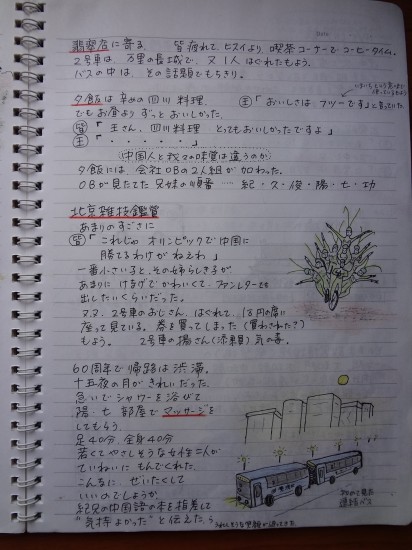 翡翠店に寄る、 皆疲れて、ヒスイより、喫茶コーナーでコーヒータイム。
2号車は、万里の長城で、又1人はぐれたもよう。
バスの中は、その話題でもちきり。
夕飯は辛めの四川料理、 王「おいしさは、フツーです」と言っていた
でもお昼より ずっとおいしかった。
皆「王さん、四川料理 とってもおいしかったですよ」
王「・・・・・」
中国人と我々の味覚は違うのか
夕飯には、会社OBの2人組が加わった。
OBが見たてた兄妹の順番 …… 紀・久・俊・陽・七・功
北京雑技鑑賞
あまりのすごさに
皆「これじゃ オリンピックで中国に
勝てるわけがねえわ」
一番小さい子と、その姉らしき子が
あまりに けなげでかわいくて、ファンレターを
出したいくらいだった。
又々、2号車のおじさん、はぐれて、1万円の席に
座って見ている。 券を買ってしまった(買わされた?)
もよう。 2号車の揚さん(添乗員)気の毒。
60周年で帰路は渋滞。
十五夜の月がきれいだった。
急いでシャワーを浴びて
陽・七 部屋でマッサージを
してもらう。
足40分、全身40分
若くてやさしそうな女性二人が
ていねいにもんでくれた。
こんなに ぜいたくして
いいのでしょうか
紀兄の中国語の本を指差して
"気持よかった"と伝えたら
うれしそうな笑顔が返ってきた
連結バス